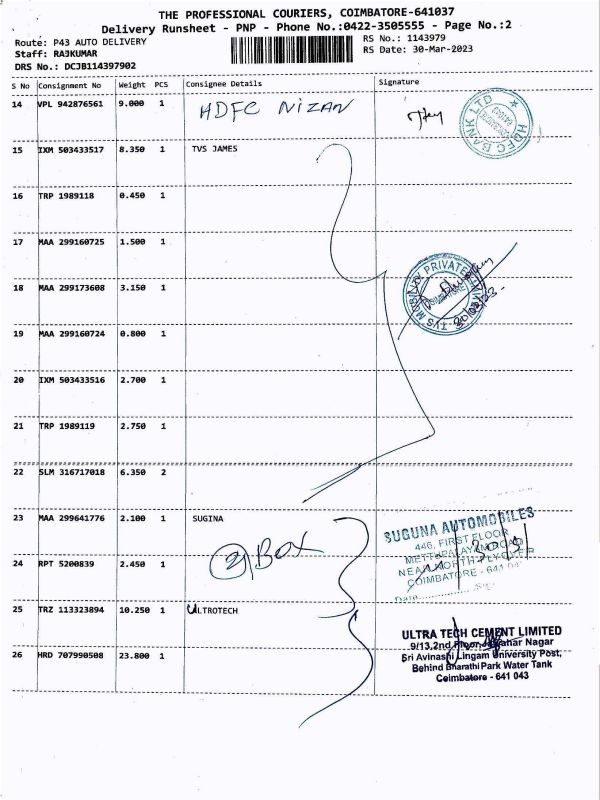 THE PROFESSIONAL COURIERS, COIMBATORE-641037
Delivery Runsheet - PNP - Phone No.:0422-3505555 - Page No.:2
Route: P43 AUTO DELIVERY
Staff: RAJKUMAR
DRS No.: DCJB114397902
RS No.: 1143979
RS Date: 30-Mar-2023
S No Consignment No Weight PCS Consignee Details Signature
14 VPL 942876561 9.000 1 HDFC NIZAN
HDFC BANK LTD
15 IXM 503433517 8.350 1 TVS JAMES
16 TRP 1989118 0.450 1
17 MAA 299160725 1.500 1
18 MAA 299173608 3.150 1
TVS MOBILITY PRIVATE LIMITED
19 MAA 299160724 0.800 1
20 IXM 503433516 2.700 1
21 TRP 1989119 2.750 1
22 SLM 316717018 6.350 2
23 MAA 299641776 2.100 1 SUGINA
SUGUNA AUTOMOBILES
446, FIRST FLOOR
METTUPALAYAM ROAD
NEAR NORTH FLYOVER
COIMBATORE - 641
Date
24 RPT 5200839 2.450 1 2 BOX
25 TRZ 113323894 10.250 1 ULTROTECH
ULTRA TECH CEMENT LIMITED
9/13,2nd Floor Jawahar Nagar
Sri Avinashi Lingam University Post,
Behind Bharathi Park Water Tank
Coimbatore - 641 043
26 HRD 707990508 23.800 1